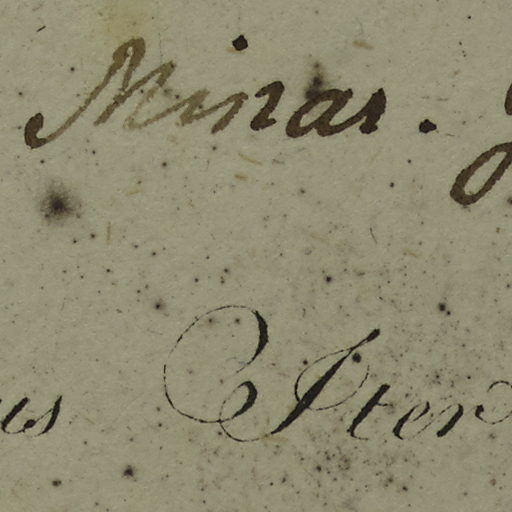 Minas.
us Iter